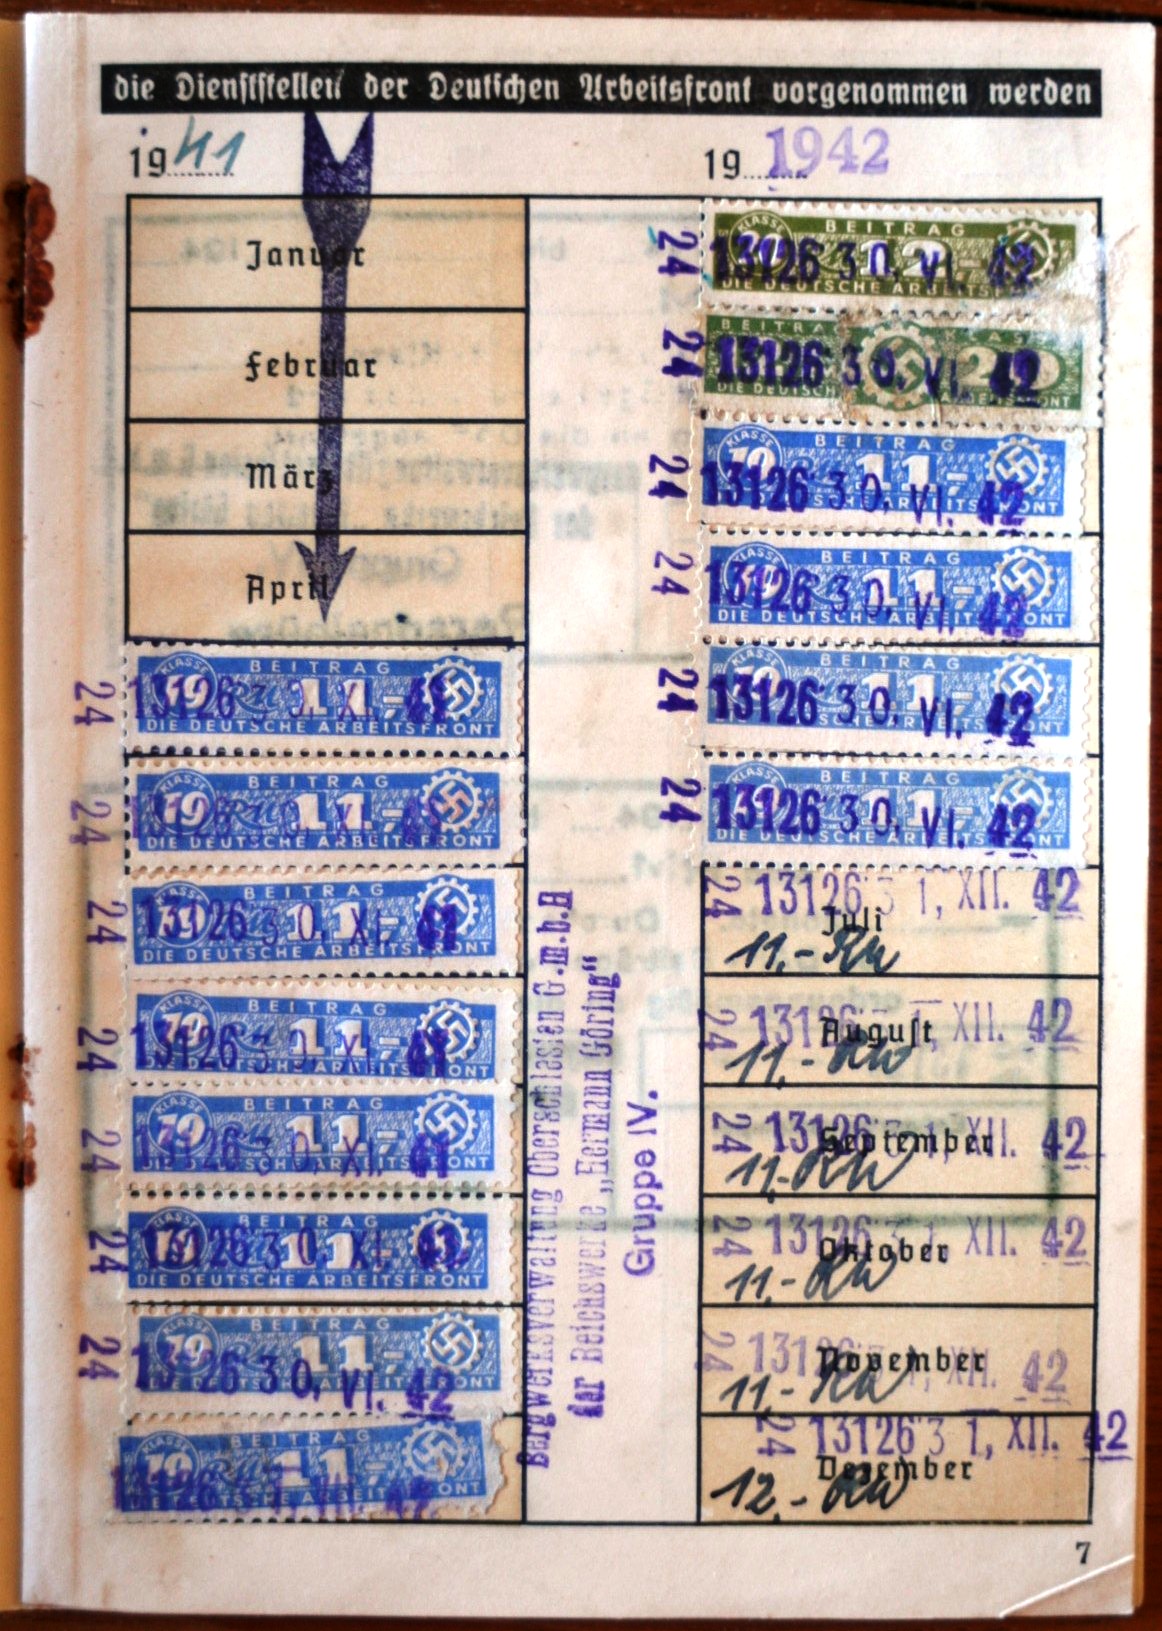 die Dienststellen der Deutschen Arbeitsfront vorgenommen werden
1941
19 1942
Januar
Februar
März
April
KLASSE 19 BEITRAG 11,-
DIE DEUTSCHE ARBEITSFRONT
24 13126 3 0. XI. 41
KLASSE 19 BEITRAG 11,-
DIE DEUTSCHE ARBEITSFRONT
24 13126 3 0. XI. 41
KLASSE BEITRAG 11,-
DIE DEUTSCHE ARBEITSFRONT
24 13126 3 0. XI. 41
KLASSE 19 BEITRAG 11,-
DIE DEUTSCHE ARBEITSFRONT
24 13126 3 0. XI. 41
KLASSE 19 BEITRAG 11,-
DIE DEUTSCHE ARBEITSFRONT
24 13126 3 0. XI. 41
KLASSE BEITRAG 11,-
DIE DEUTSCHE ARBEITSFRONT
24 13126 3 0. XI.
KLASSE 19 BEITRAG 11,-
DIE DEUTSCHE ARBEITSFRONT
24 3 0. VI. 42
KLASSE 19 BEITRAG 11,-
DIE DEUTSCHE ARBEITSFRONT
13126
Bergwerksverwaltung Oberschlesien G.m.b.H
der Reichswerke „Hermann Göring“
Gruppe IV.
KLASSE BEITRAG
DIE DEUTSCHE
24 13126 3 0. VI. 42
BEITRAG
DIE DEUTSCHE ARBEITSFRONT
24 13126 3 0. VI. 42
KLASSE 19 BEITRAG 11,-
24 13126 3 0. VI. 42
KLASSE BEITRAG 11,-
DIE DEUTSCHE ARBEITSFRONT
24 13126 3 0. VI. 42
KLASSE BEITRAG 11,-
DIE DEUTSCHE ARBEITSFRONT
24 13126 3 0. VI. 42
KLASSE BEITRAG 11,-
DIE DEUTSCHE ARBEITSFRONT
24 13126 3 0. VI. 42
24 13126 3 1, XII. 42
Juli
11.-
24 13126 3 1, XII. 42
August
11.-
24 13126 3 1, XII. 42
September
11.-
24 13126 3 1, XII. 42
Oktober
11.-
24 13126 3 1, XII. 42
November
11.-
24 13126 3 1, XII. 42
Dezember
12.-
7